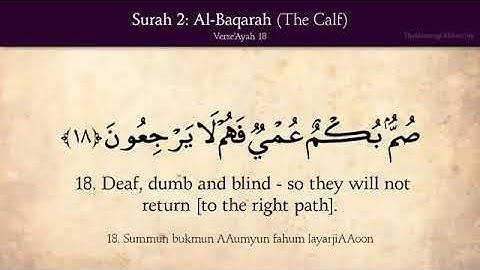 Surah 2: Al-Baqarah (The Calf)
Verse/Ayah 18
صُمٌّۢ بُكْمٌ عُمْىٌۭ فَهُمْ لَا يَرْجِعُونَ ﴿١٨﴾
18. Deaf, dumb and blind - so they will not
return [to the right path].
18. Summun bukmun AAumyun fahum layarjiAAoon